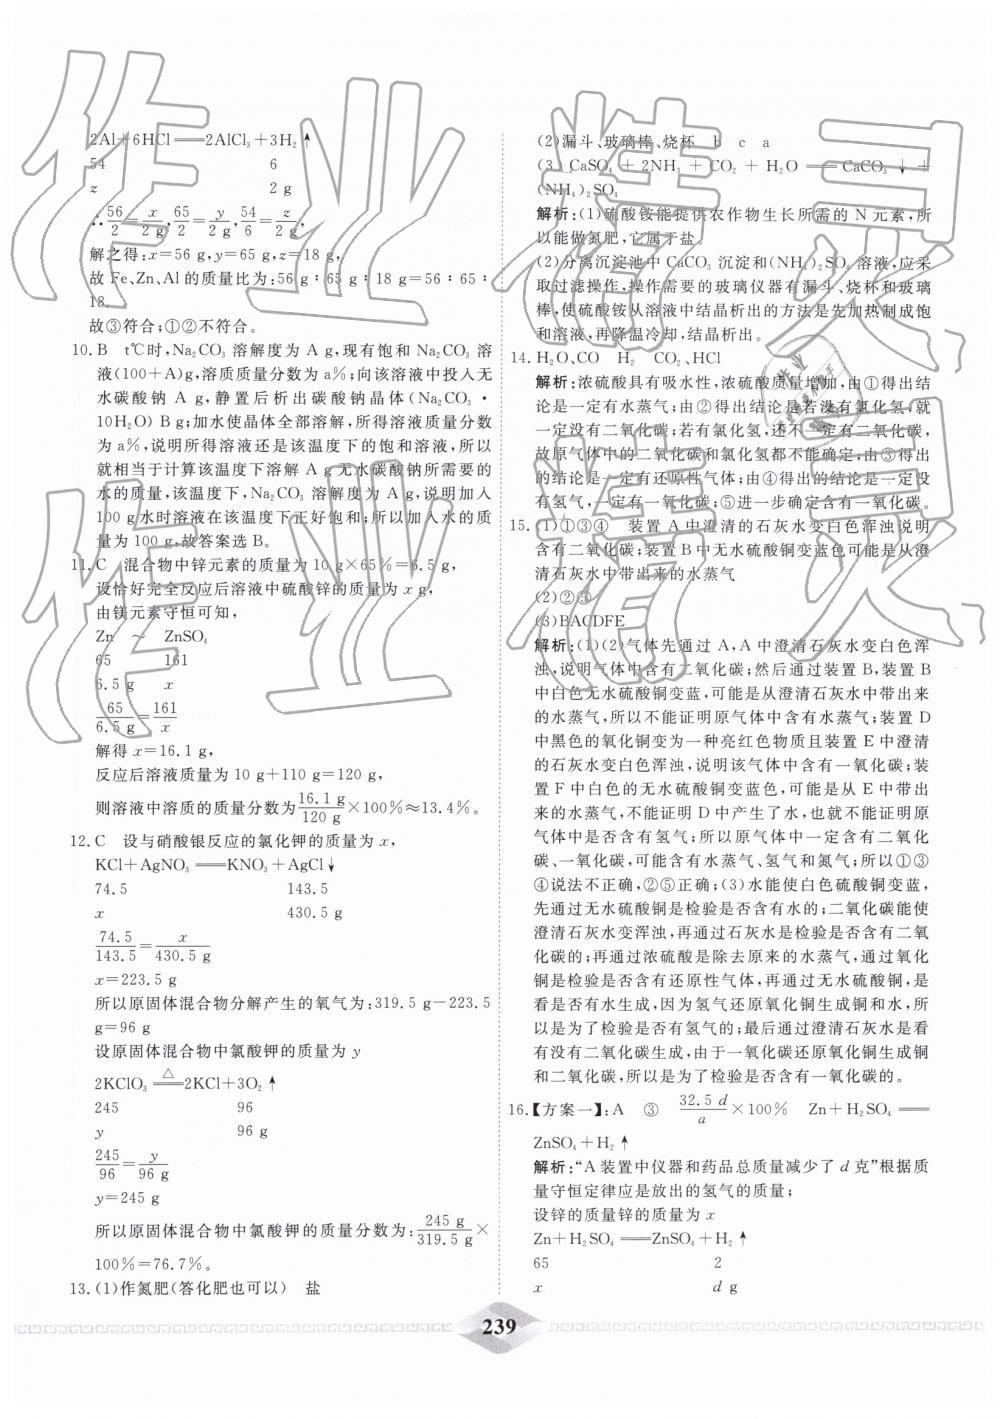 2Al+6HCl══2AlCl₃+3H₂↑
54 6
z 2 g
∴56/2=x/2 g,65/2=y/2 g,54/6=z/2 g,
解之得:x=56 g,y=65 g,z=18 g,
故 Fe、Zn、Al 的质量比为:56 g∶65 g∶18 g=56∶65∶
18。
故③符合;①②不符合。
10. B t℃时,Na₂CO₃ 溶解度为 A g,现有饱和 Na₂CO₃ 溶
液(100+A)g,溶质质量分数为 a%;向该溶液中投入无
水碳酸钠 A g,静置后析出碳酸钠晶体(Na₂CO₃·
10H₂O)B g;加水使晶体全部溶解,所得溶液质量分数
为 a%,说明所得溶液还是该温度下的饱和溶液,所以
就相当于计算该温度下溶解 A g 无水碳酸钠所需要的
水的质量,该温度下,Na₂CO₃ 的溶解度为 A g,说明加入
100 g 水时溶液在该温度下正好饱和;所以加入水的质
量为 100 g,故答案选 B。
11. C 混合物中锌元素的质量为 10 g×65%=6.5 g,
设恰好完全反应后溶液中硫酸锌的质量为 x g,
由镁元素守恒可知,
Zn ~ ZnSO₄
65 161
6.5 g x
65/6.5 g=161/x
解得 x=16.1 g,
反应后溶液质量为 10 g+110 g=120 g,
则溶液中溶质的质量分数为16.1 g/120 g×100%≈13.4%。
12. C 设与硝酸银反应的氯化钾的质量为 x,
KCl+AgNO₃══KNO₃+AgCl↓
74.5 143.5
x 430.5 g
74.5/143.5=x/430.5 g
x=223.5 g
所以原固体混合物分解产生的氧气为:319.5 g-223.5
g=96 g
设原固体混合物中氯酸钾的质量为 y
2KClO₃ ═△═ 2KCl+3O₂↑
245 96
y 96 g
245/96=y/96 g
y=245 g
所以原固体混合物中氯酸钾的质量分数为:245 g/319.5 g×
100%=76.7%。
13. (1)作氮肥(答化肥也可以) 盐
(2)漏斗、玻璃棒、烧杯 b c a
(3) CaSO₄ + 2NH₃ + CO₂ + H₂O ══ CaCO₃↓ +
(NH₄)₂SO₄
解析:(1)硫酸铵能提供农作物生长所需的 N 元素,所
以能做氮肥,它属于盐。
(2)分离沉淀池中 CaCO₃ 沉淀和(NH₄)₂SO₄ 溶液,应采
取过滤操作,操作需要的玻璃仪器有漏斗、烧杯和玻璃
棒,使硫酸铵从溶液中结晶析出的方法是先加热制成饱
和溶液,再降温冷却,结晶析出。
14. H₂O、CO H₂ CO₂、HCl
解析:浓硫酸具有吸水性,浓硫酸质量增加,由①得出结
论是一定有水蒸气;由②得出结论是若没有氯化氢,就
一定没有二氧化碳;若有氯化氢,还不一定有二氧化碳,
故原气体中的二氧化碳和氯化氢都不能确定;由③得出
的结论是一定有还原性气体;由④得出的结论是一定没
有氢气,一定有一氧化碳;⑤进一步确定含有一氧化碳。
15. (1)①③④ 装置 A 中澄清的石灰水变白色浑浊说明
含有二氧化碳;装置 B 中无水硫酸铜变蓝色可能是从澄
清石灰水中带出来的水蒸气
(2)②⑤
(3)BACDFE
解析:(1)(2)气体先通过 A,A 中澄清石灰水变白色浑
浊,说明气体中含有二氧化碳;然后通过装置 B,装置 B
中白色无水硫酸铜变蓝,可能是从澄清石灰水中带出来
的水蒸气,所以不能证明原气体中含有水蒸气;装置 D
中黑色的氧化铜变为一种亮红色物质且装置 E 中澄清
的石灰水变白色浑浊,说明该气体中含有一氧化碳;装
置 F 中白色的无水硫酸铜变蓝色,可能是从 E 中带出
来的水蒸气,不能证明 D 中产生了水,也就不能证明原
气体中是否含有氢气;所以气体中一定含有二氧化
碳、一氧化碳,可能含有水蒸气、氢气和氮气;所以①③
④说法不正确,②⑤正确;(3)水能使白色硫酸铜变蓝,
先通过无水硫酸铜是检验是否含有水的;二氧化碳能使
澄清石灰水变浑浊,再通过石灰水是检验是否含有二氧
化碳的;再通过浓硫酸是除去原来的水蒸气,通过氧化
铜是检验是否含有还原性气体,再通过无水硫酸铜,是
看是否有水生成,因为氢气还原氧化铜生成铜和水,所
以是为了检验是否有氢气的;最后通过澄清石灰水是看
有没有二氧化碳生成,由于一氧化碳还原氧化铜生成铜
和二氧化碳,所以是为了检验是否含有一氧化碳的。
16.【方案一】:A ③ 32.5 d/a×100% Zn+H₂SO₄══
ZnSO₄+H₂↑
解析:“A 装置中仪器和药品总质量减少了 d 克”根据质
量守恒定律应是放出的氢气的质量;
设锌的质量锌的质量为 x
Zn+H₂SO₄══ZnSO₄+H₂↑
65 2
x d g
239
作业精灵
作业精灵